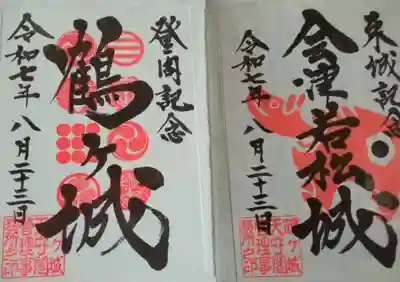 来城記念
会津若松城
令和七年 八月二十三日
登閣記念
鶴ヶ城
令和七年 八月二十三日